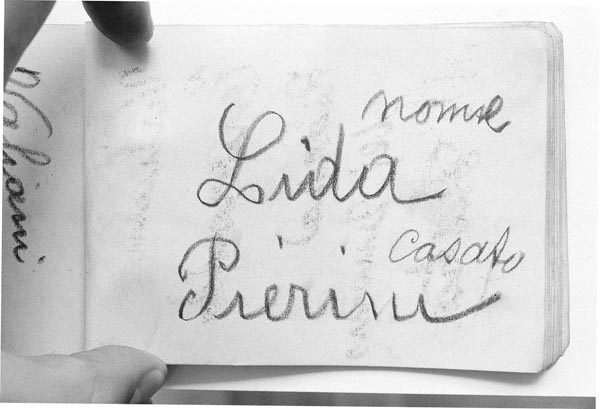 nome
Lida
casato
Pierini